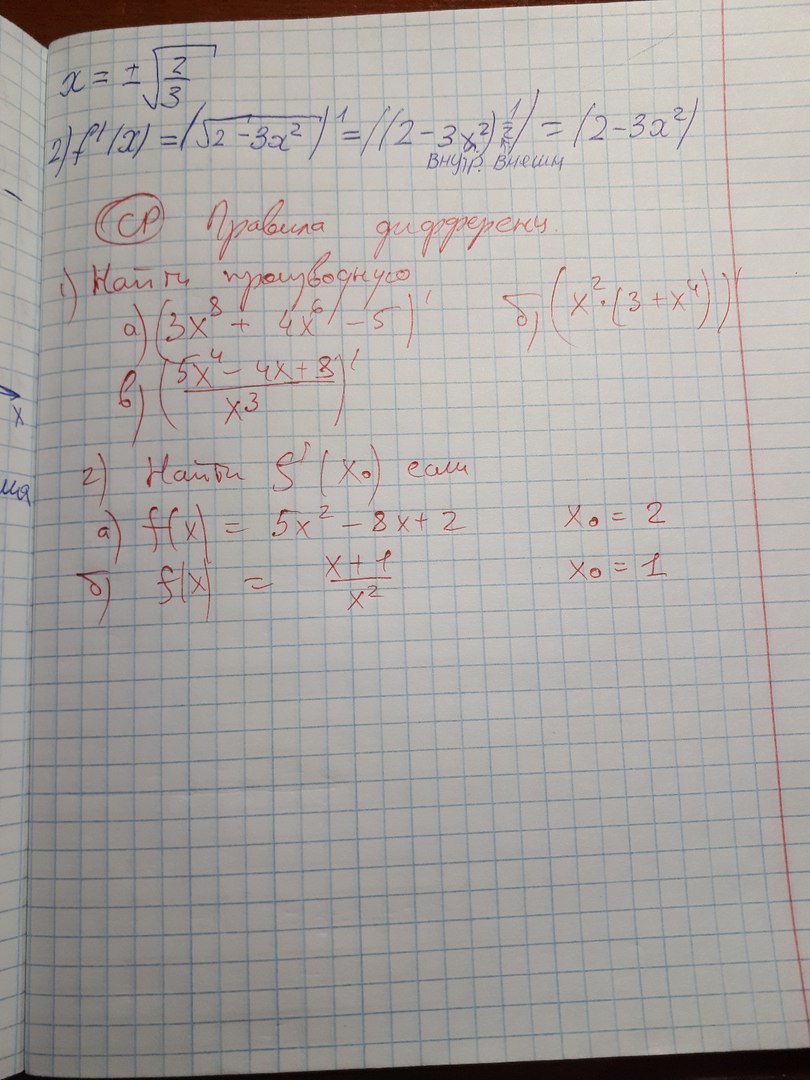 x = ±√(2/3)
2) f'(x) = (√(2-3x²))' = ((2-3x²)^(1/2))' = (2-3x²)
внутр. внешн
СР Правила дифференц.
1) Найти производную
а) (3x⁸ + 4x⁶ - 5)' б) (x²·(3+x⁴))'
в) ((5x⁴ - 4x + 8)/x³)'
2) Найти f'(x₀) если
а) f(x) = 5x² - 8x + 2 x₀ = 2
б) f(x) = (x+1)/x² x₀ = 1
x